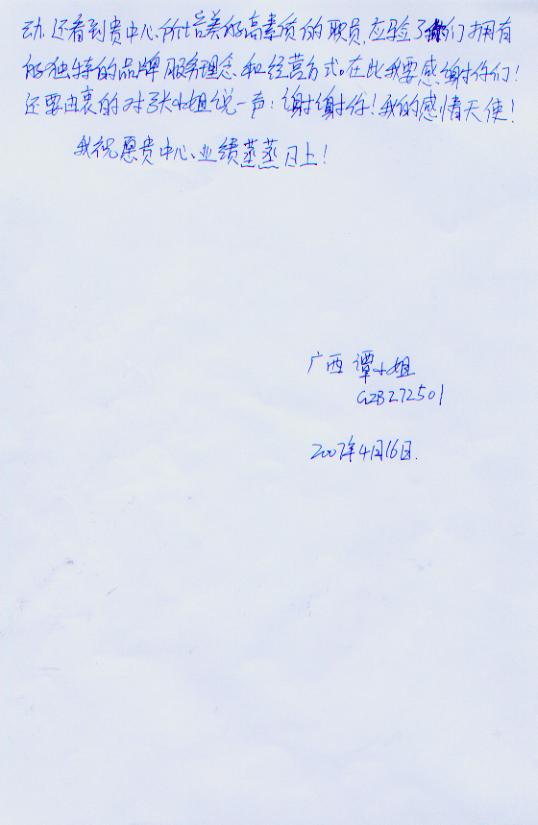 动.还看到贵中心所培养的高素质的职员,应验了你们拥有
的独特的品牌服务理念和经营方式。在此我要感谢你们!
还要由衷的对张小姐说一声:谢谢你!我的感情天使!
我祝愿贵中心、业绩蒸蒸日上!
广西 谭小姐
GZB272501
2007年4月16日.